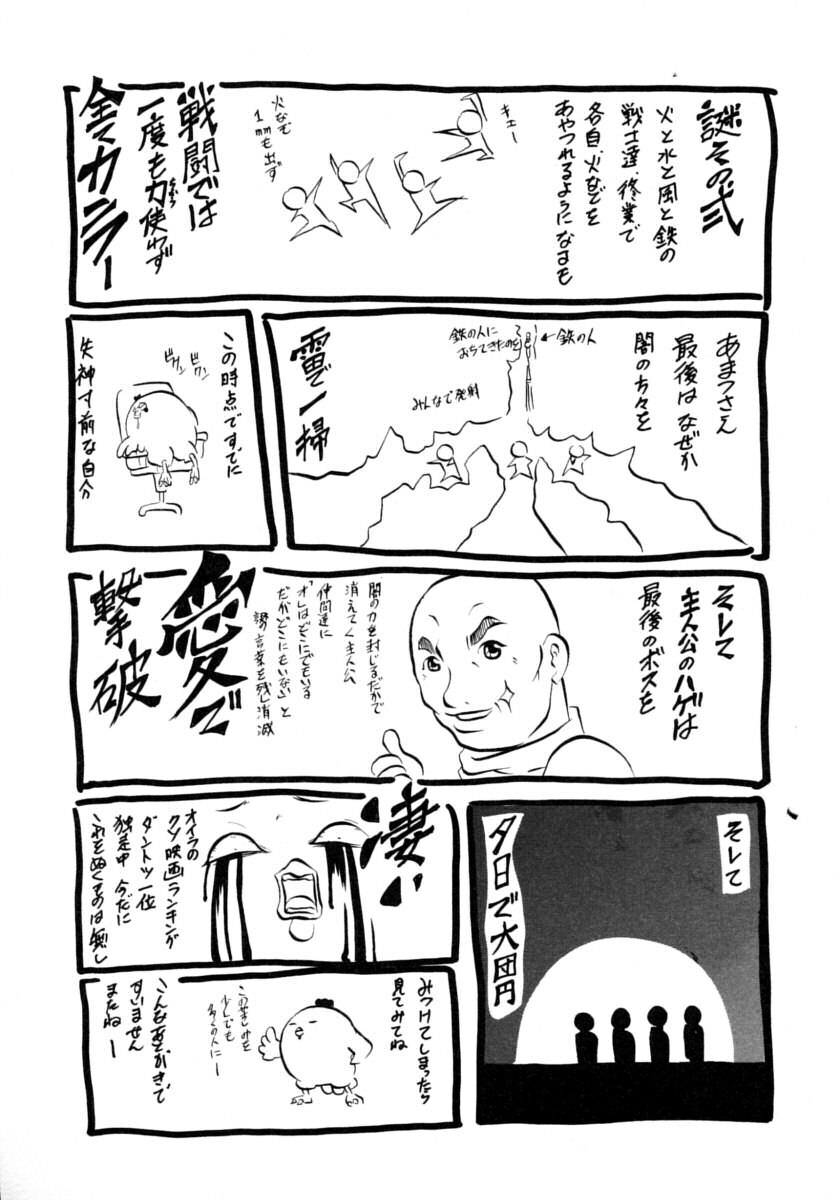 謎その弐
火と水と風と鉄の
戦士達、修業で
各自、火などを
あやつれるようになるも
キエー
火など
1mmも出ず
戦闘では
一度も力使わず
全てカンフー
あまつさえ
最後はなぜか
闇の方々を
←鉄の人
鉄の人に
おちてきたのを
みんなで発射
雷で一掃
この時点ですでに
ビクン
ビクン
失神寸前な自分
そして
主人公のハゲは
最後のボスを
闇の力を封じるだかで
消えてく主人公
仲間達に
「オレはどこにでもいる
だがどこにもいない」と
謎の言葉を残し消滅
愛で
撃破
そして
夕日で大団円
凄い
オイラの
クソ映画ランキングが
ダントツ一位
独走中 今だに
これをぬくものは無し
みつけてしまったら
見てみてね
この苦しみを
少しでも
多くの人にー
こんなあとがきで
すいません
またねー